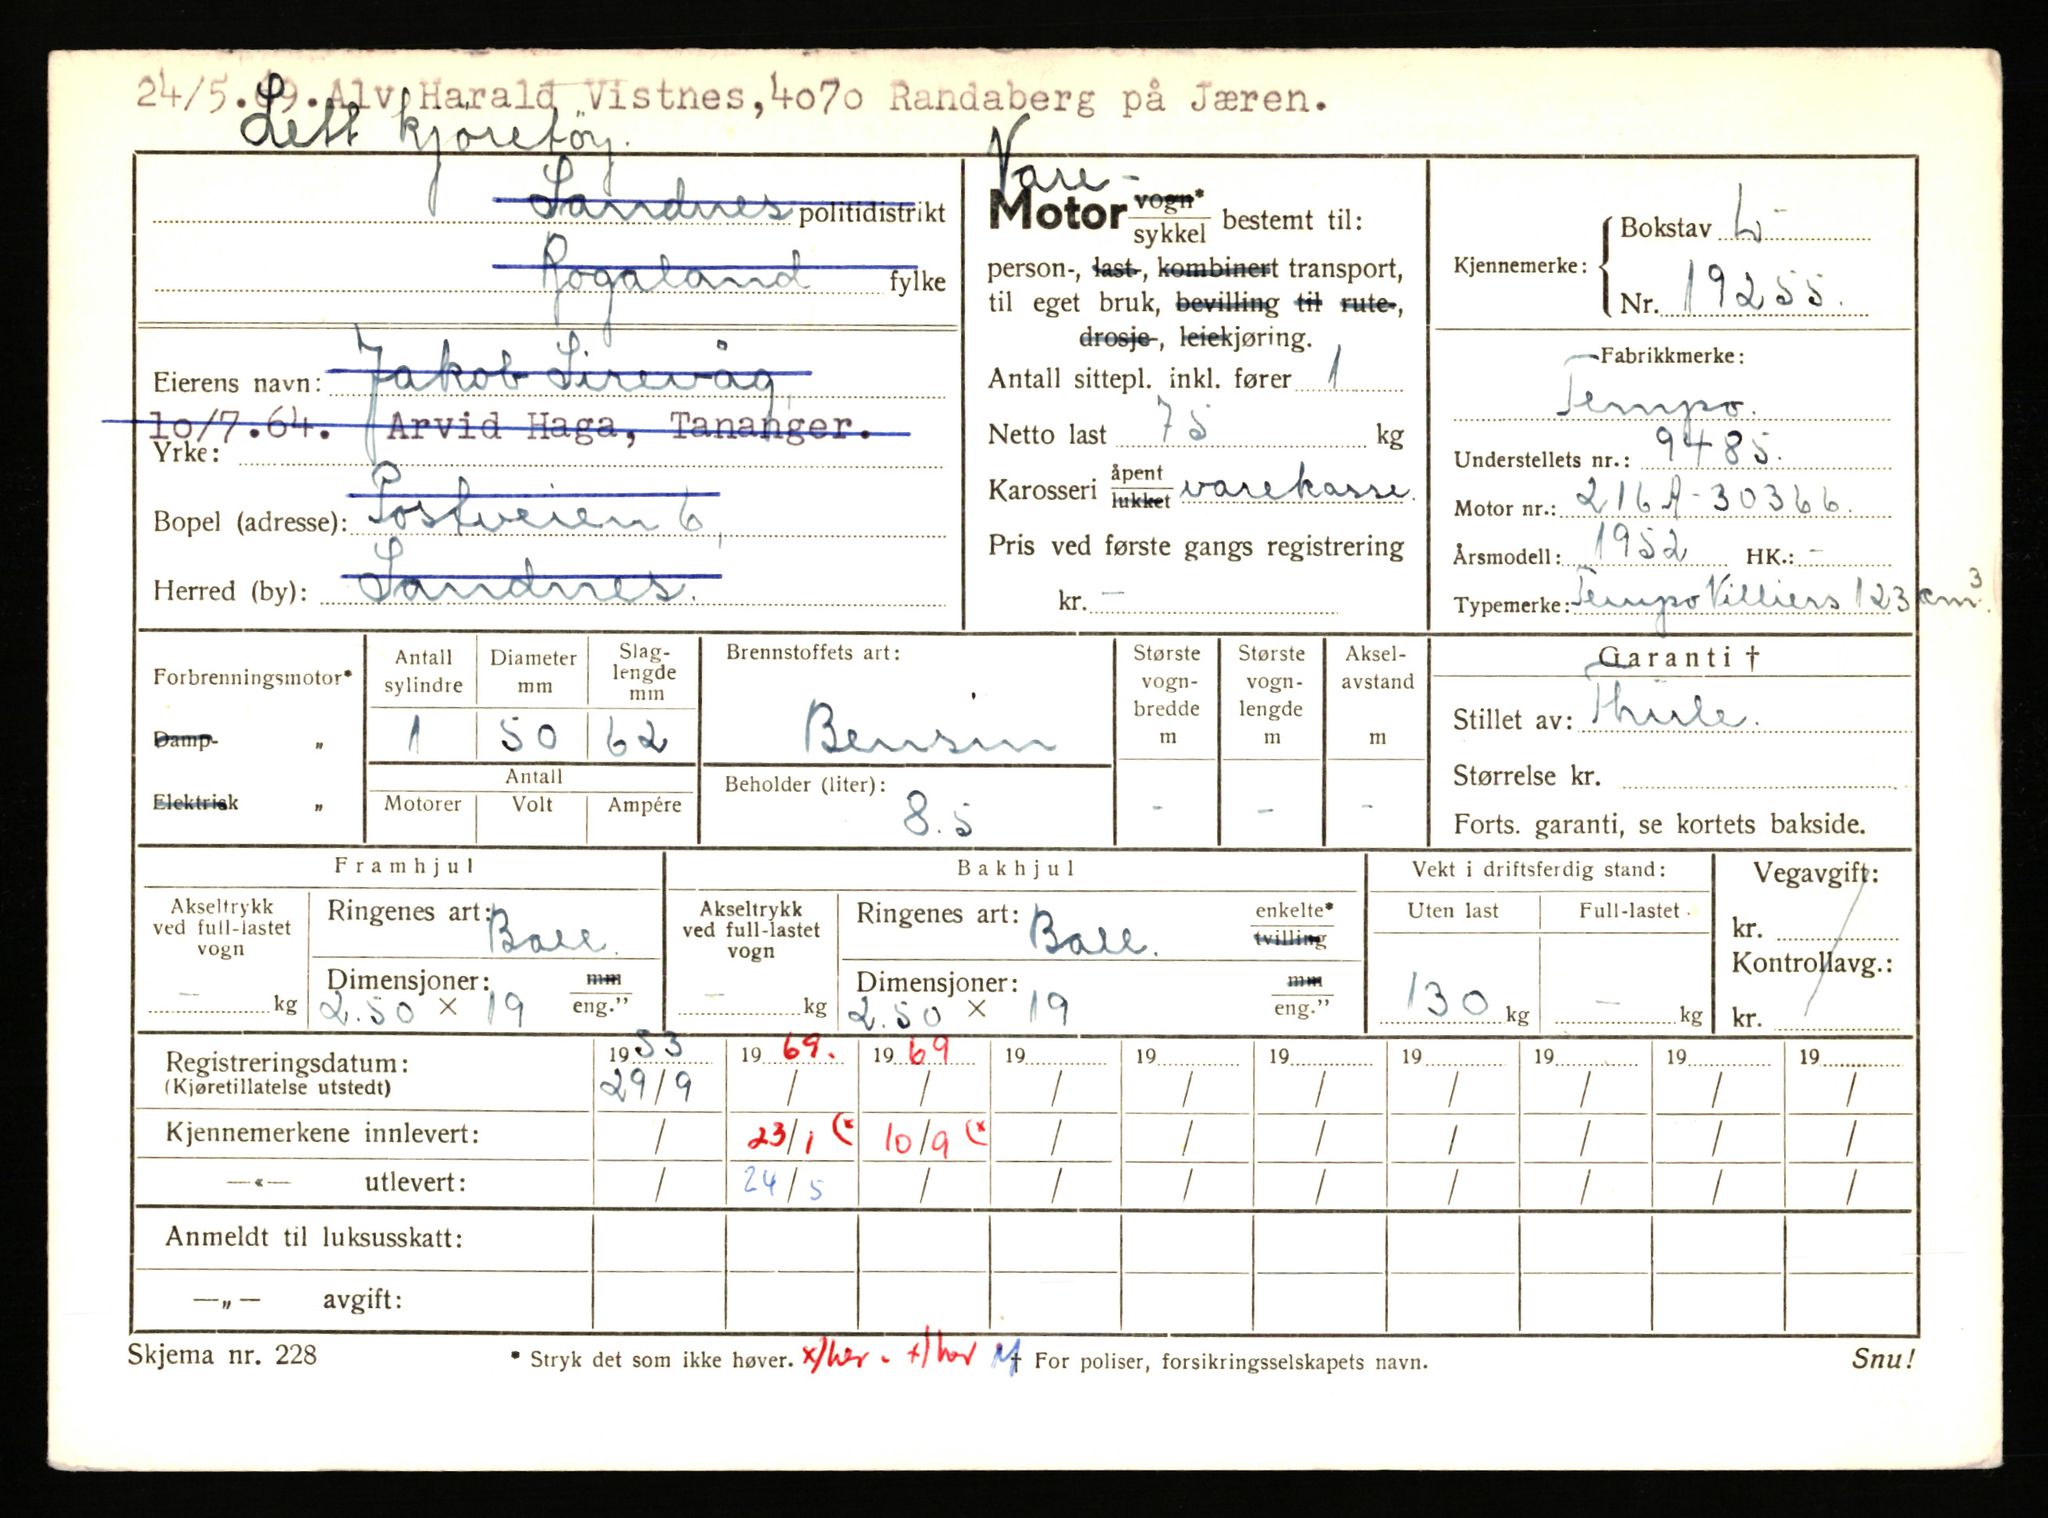 24/5.69. Alv Harald Vistnes, 4070 Randaberg på Jæren.
Lett kjøretøy.
Sandnes politidistrikt
Rogaland fylke
Eierens navn: Jakob Sirevåg
10/7.64. Arvid Haga, Tananger.
Yrke:
Bopel (adresse): Postveien 6,
Herred (by): Sandnes.
Vare-
Motor vogn* / sykkel bestemt til:
person-, last-, kombinert transport,
til eget bruk, bevilling til rute-,
drosje-, leiekjøring.
Antall sittepl. inkl. fører 1
Netto last 75 kg
Karosseri åpent / lukket varekasse.
Pris ved første gangs registrering
kr. -
Kjennemerke: Bokstav L-
Nr. 19255.
Fabrikkmerke:
Tempo.
Understellets nr.: 9485.
Motor nr.: 216A-30366.
Årsmodell: 1952 HK.: -
Typemerke: Tempo Villiers 123 cm³.
Forbrenningsmotor*
Damp- „
Elektrisk „
Antall sylindre Diameter mm Slag-lengde mm
1 50 62
Antall
Motorer Volt Ampére
Brennstoffets art:
Bensin
Beholder (liter):
8.5
Største vogn-bredde m Største vogn-lengde m Aksel-avstand m
- - -
Garanti †
Stillet av: Thule.
Størrelse kr.
Forts. garanti, se kortets bakside.
Framhjul
Akseltrykk ved full-lastet vogn
- kg
Ringenes art: Ball.
Dimensjoner: mm / eng."
2.50 × 19
Bakhjul
Akseltrykk ved full-lastet vogn
- kg
Ringenes art: Ball. enkelte* / tvilling
Dimensjoner: mm / eng."
2.50 × 19
Vekt i driftsferdig stand:
Uten last Full-lastet
130 kg - kg
Vegavgift:
kr.
Kontrollavg.:
kr.
Registreringsdatum: 1953 1969. 1969 19 19 19 19 19 19 19
(Kjøretillatelse utstedt) 29/9 / / / / / / / / /
Kjennemerkene innlevert: / 23/1 (* 10/9 (* / / / / / / /
—«— utlevert: / 24/5 / / / / / / / /
Anmeldt til luksusskatt:
—„— avgift:
Skjema nr. 228
* Stryk det som ikke høver. x/her. +/her † For poliser, forsikringsselskapets navn.
Snu!